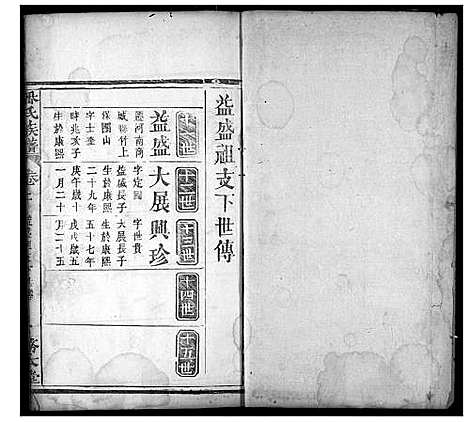 益盛祖支下世傳
十一世
十二世
十三世
十四世
十五世
益盛
大展
興珍
字定國
字世貴
城縣竹上
益盛長子
大展長子
保團山
生於康熙
生於康熙
字士奎
二十九年
五十七年
時兆亥子
庚午歲十
戊戌歲五
生於康熙
一月二十
月二十五
氏族譜